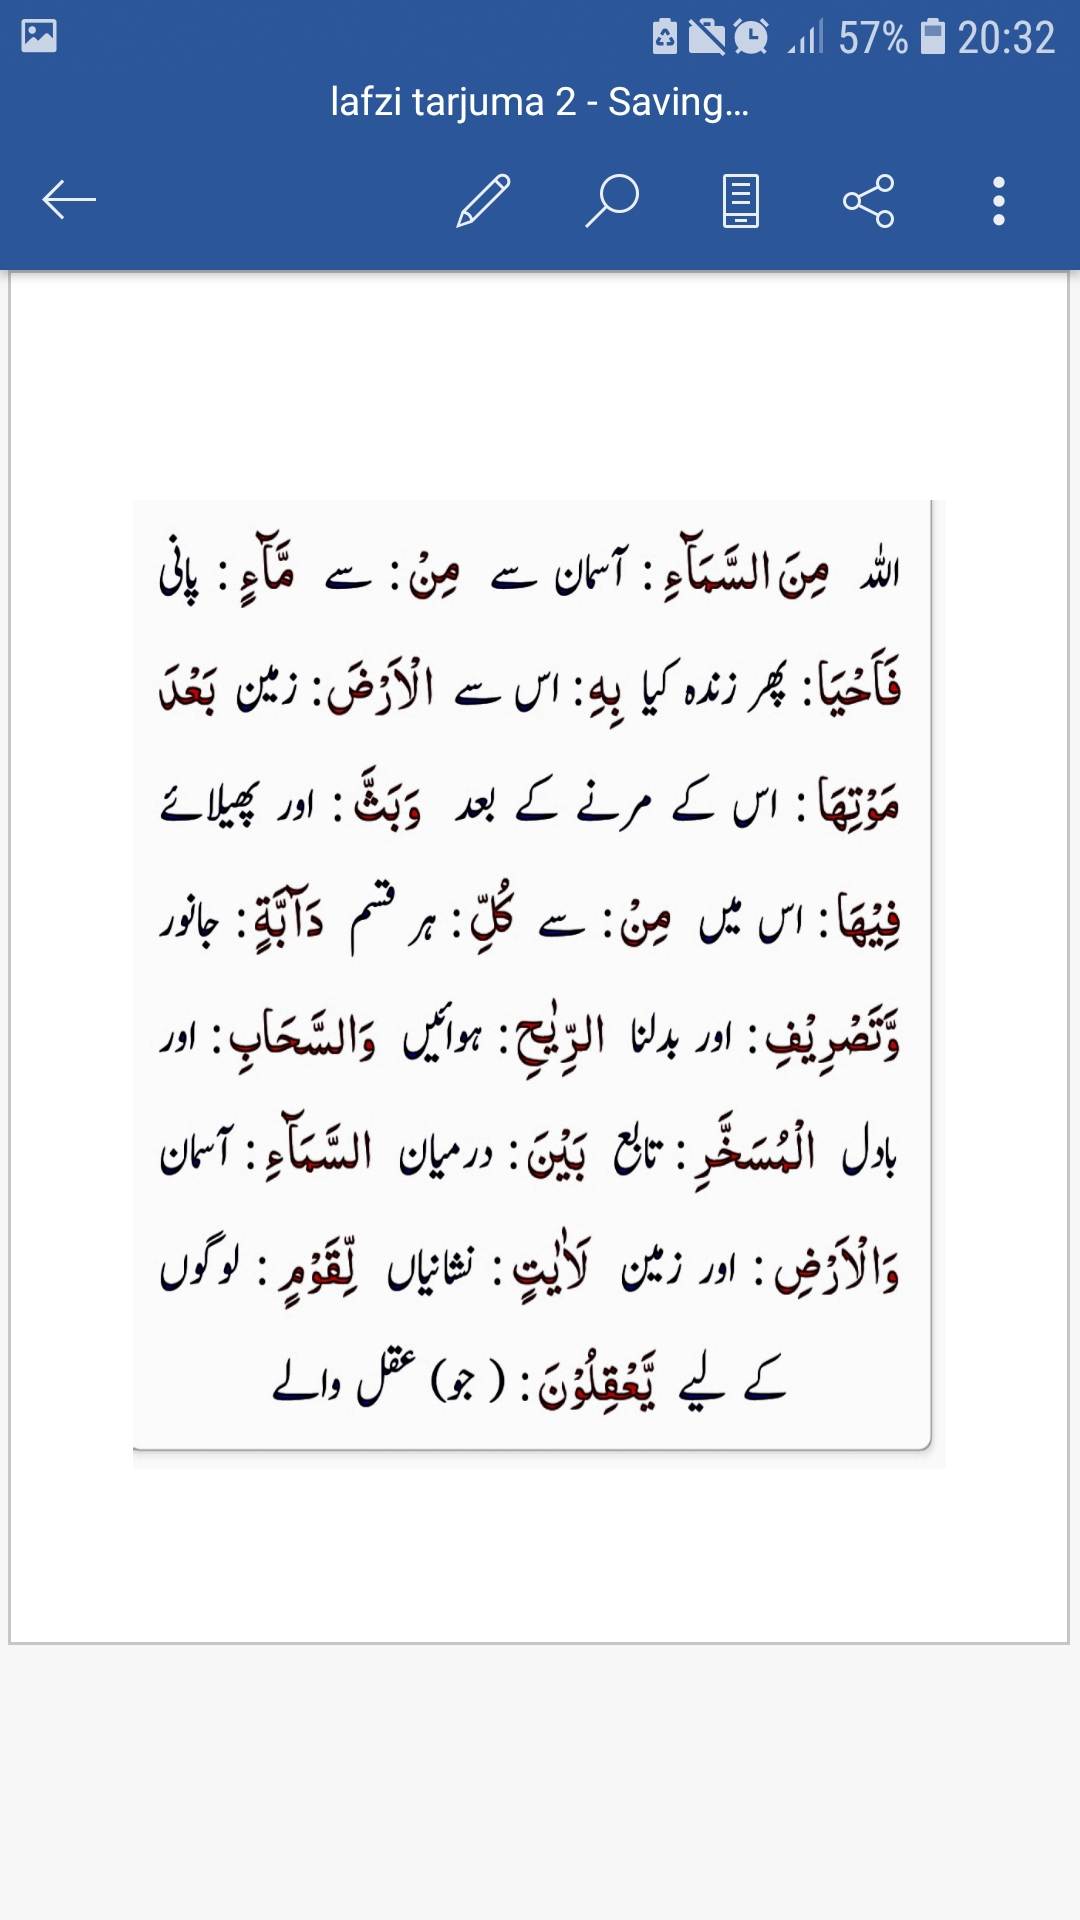 57% 20:32
lafzi tarjuma 2 - Saving...
اللہ مِنَ السَّمَآءِ : آسمان سے مِنْ : سے مَّآءٍ : پانی
فَاَحْيَا : پھر زندہ کیا بِهِ : اس سے الْاَرْضَ : زمین بَعْدَ
مَوْتِهَا : اس کے مرنے کے بعد وَبَثَّ : اور پھیلائے
فِيْهَا : اس میں مِنْ : سے كُلِّ : ہر قسم دَآبَّةٍ : جانور
وَّتَصْرِيْفِ : اور بدلنا الرِّيٰحِ : ہوائیں وَالسَّحَابِ : اور
بادل الْمُسَخَّرِ : تابع بَيْنَ : درمیان السَّمَآءِ : آسمان
وَالْاَرْضِ : اور زمین لَاٰيٰتٍ : نشانیاں لِّقَوْمٍ : لوگوں
کے لیے يَّعْقِلُوْنَ : ( جو) عقل والے